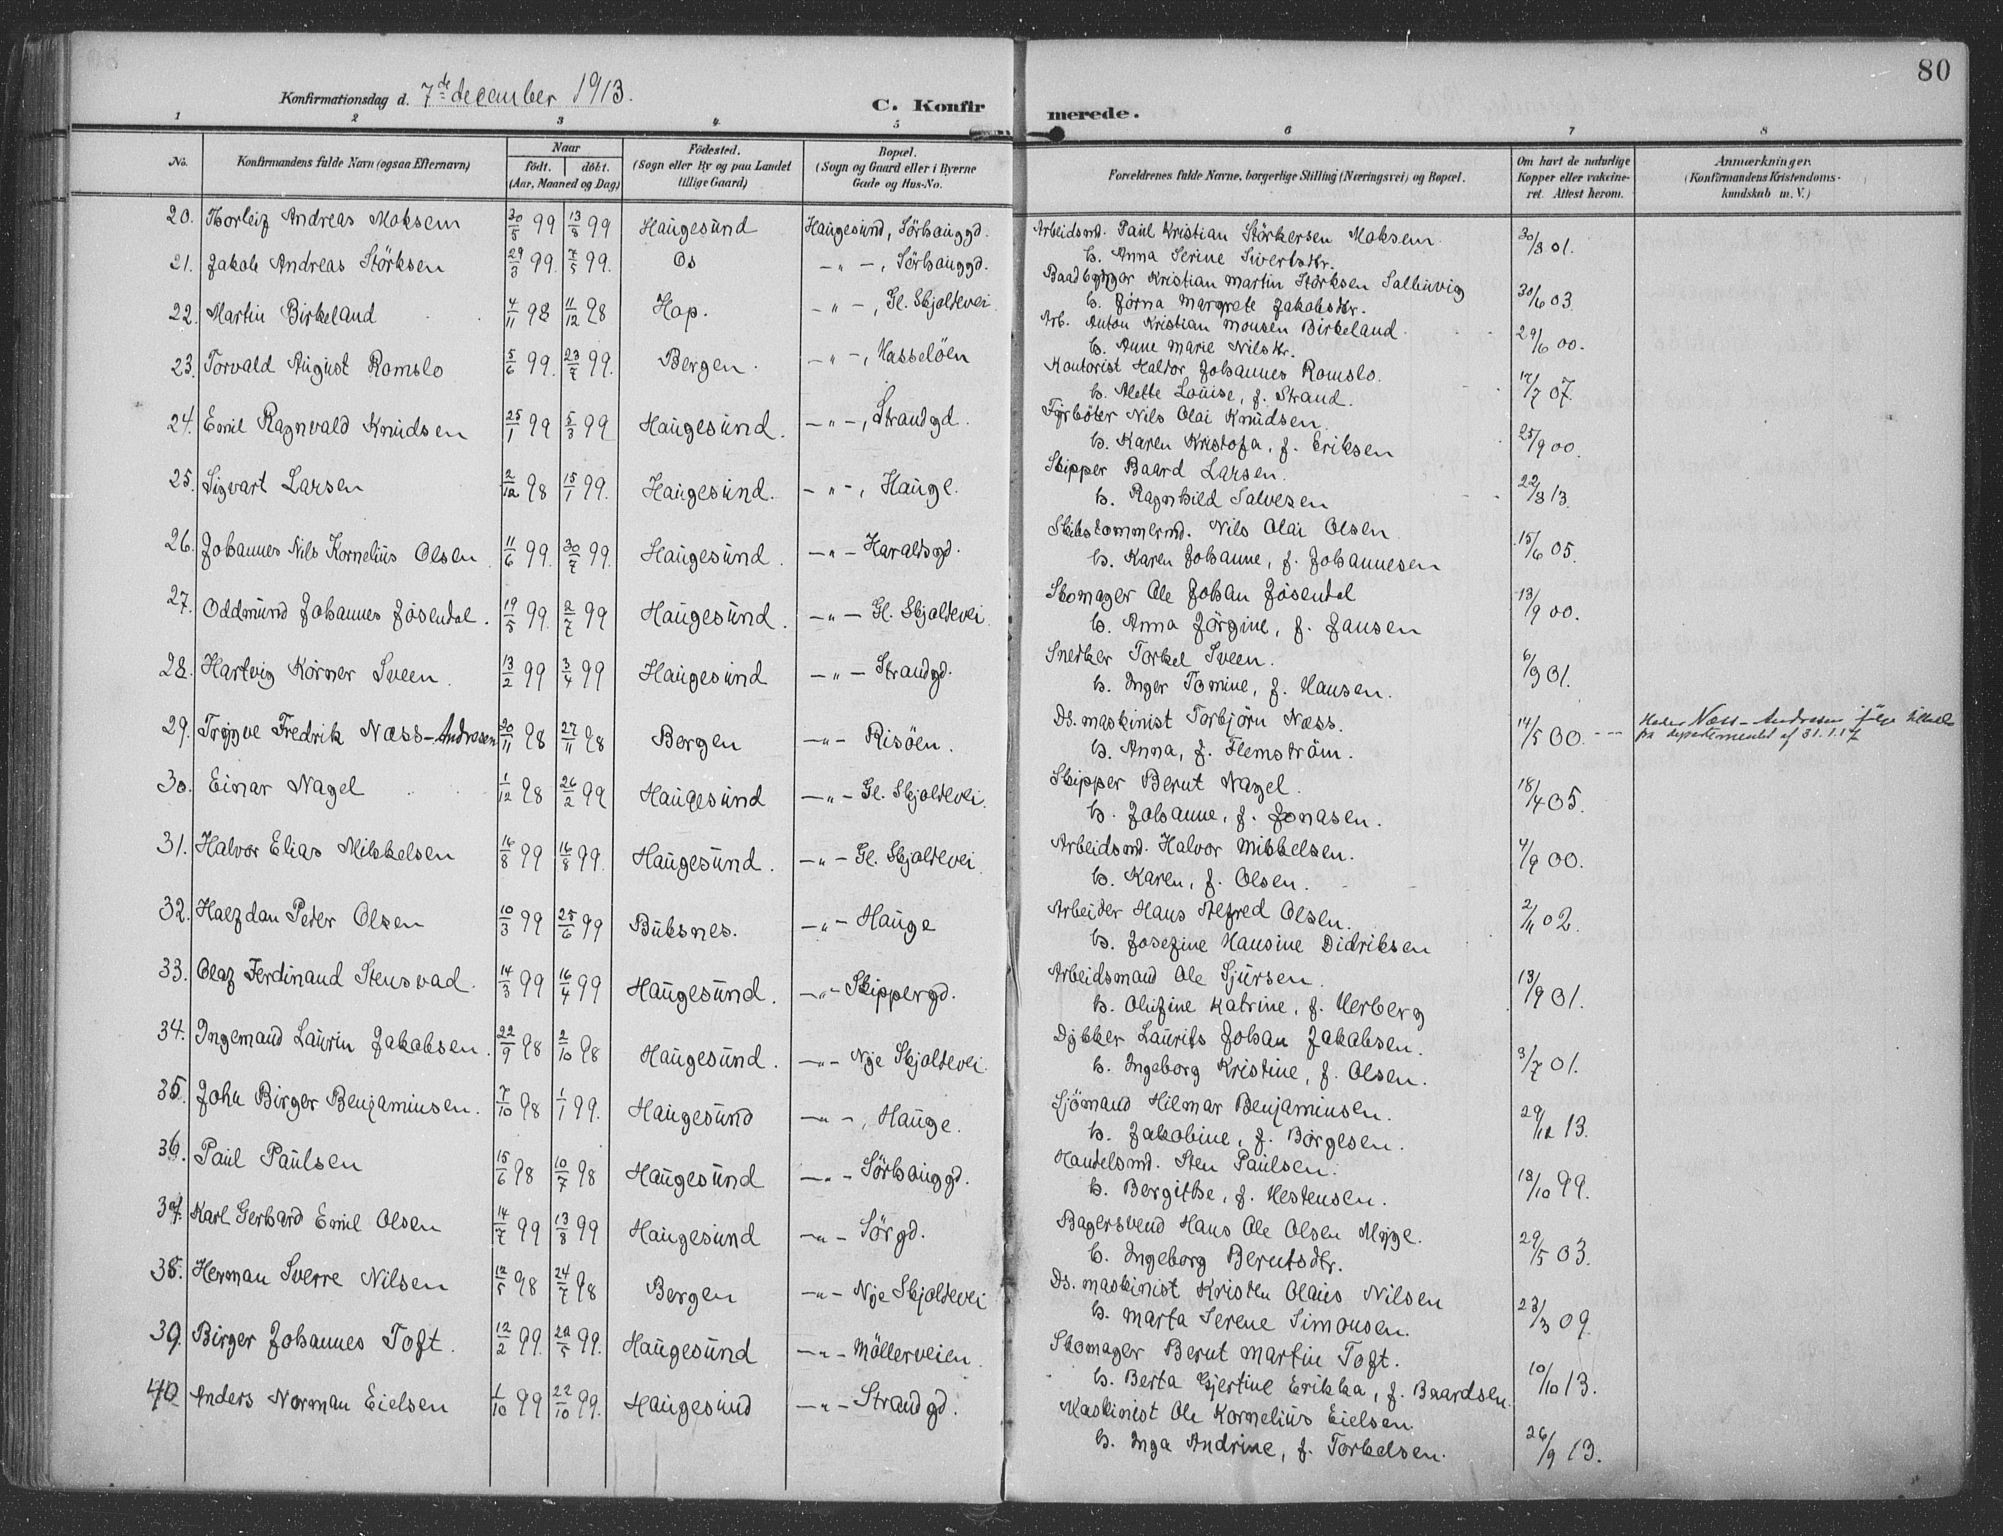 80
Konfirmationsdag d. 7de december 1913.
C. Konfirmerede.
1 2 3 4 5 6 7 8
No. Konfirmandens fulde Navn (ogsaa Efternavn) Naar födt. döbt. (Aar, Maaned og Dag) Födested. (Sogn eller By og paa Landet tillige Gaard) Bopæl. (Sogn og Gaard eller i Byerne Gade og Hus-No. Forældrenes fulde Navne, borgerlige Stilling (Næringsvei) og Bopæl. Om havt de naturlige Kopper eller vakcineret. Attest herom. Anmærkninger. (Konfirmandens Kristendomskundskab m. V.)
20. Thorleif Andreas Moksem 30/5 99 13/8 99 Haugesund Haugesund, Sörhauggd. Arbeidsmd. Paul Kristian Störkersen Moksem 30/8 01.
h. Anna Serine Sivertsdtr.
21. Jakob Andreas Störksen 29/3 99. 7/5 99. Os - " -, Sörhauggd. Baadbygger Kristian Martin Störksen Salhusvig 30/6 03
h. Jörna Margrete Jakobsdtr.
22. Martin Birkeland 4/11 98 11/12 98 Hop. - " -, Gl. Skjoldevei Arb. Anton Kristian Monsen Birkeland 29/6 00.
h. Anne Marie Nilsdtr.
23. Torvald August Romslo 5/6 99. 23/7 99. Bergen. - " -, Hasselöen Kontorist Haldor Johannes Romslo. 17/7 07.
h. Alette Louise, f. Strand.
24. Emil Ragnvald Knudsen 25/1 99 5/3 99 Haugesund. - " -, Strandgd. Fyrböter Nils Olai Knudsen 25/9 00.
h. Karen Kristofa, f. Eriksen
25. Sigvart Larsen 2/12 98 15/1 99. Haugesund. - " -, Hauge. Skipper Baard Larsen. 22/8 13.
h. Ragnhild Salvesen
26. Johannes Nils Kornelius Olsen 11/6 99. 30/7 99. Haugesund. - " - Haraldsgd. Skibstömmermd. Nils Olai Olsen 15/6 05.
h. Karen Johanne, f. Johannesen
27. Oddmund Johannes Jösendal. 19/5 99. 2/7 99 Haugesund. - " - Gl. Skjoldevei Skomager Ole Johan Jösendal 13/9 00.
h. Anna Jörgine, f. Jansen
28. Hartvig Körner Sveen. 13/2 99 3/4 99 Haugesund - " - Strandgd. Snedker Torkel Sveen. 6/9 01.
h. Inger Tomine, f. Hansen.
29. Trygve Fredrik Næss-Andresen 20/11 98 27/11 98 Bergen - " - Risöen. Ds. maskinist Torbjörn Næss. 14/5 00. Heder Næss-Andresen ifölge
fra departementet af 31.1.17
h. Anna, f. Flemström.
30. Einar Nagel 1/12 98 26/2 99 Haugesund - " - Gl. Skjoldevei. Skipper Bernt Nagel. 18/4 05.
h. Johanne, f. Jonasen.
31. Halvor Elias Mikkelsen 16/8 99 16/8 99. Haugesund. - " - Gl. Skjoldevei Arbeidsmd. Halvor Mikkelsen. 4/9 00.
h. Karen, f. Olsen.
32. Halfdan Peder Olsen 10/3 99 25/6 99 Buksnes. - " - Hauge Arbeider Hans Alfred Olsen. 2/11 02.
h. Josefine Hansine Didriksen
33. Olaf Ferdinand Stensvad. 14/3 99 16/4 99 Haugesund. - " - Skippergd. Arbeidsmand Ole Sjursen. 13/9 01.
h. Olufine Katrine, f. Herberg
34. Ingemand Laurin Jakobsen. 22/9 98 2/10 98 Haugesund. - " - Nye Skjoldevei. Dykker Laurits Johan Jakobsen. 3/7 01.
h. Ingeborg Kristine, f. Olsen.
35. John Birger Benjaminsen. 7/10 98 1/1 99. Haugesund - " -, Hauge. Sjömand Hilmar Benjaminsen. 29/12 13.
h. Jakobine, f. Börgesen.
36. Paul Paulsen 15/6 98 10/7 98 Haugesund - " - Sörhauggd. Handelsmd. Sten Paulsen. 13/10 99.
h. Bergithe, f. Hestensen.
37. Karl Gerhard Emil Olsen 14/7 99 13/8 99 Haugesund - " - Sörgd. Bagersvend Hans Ole Olsen Myge. 29/5 03.
h. Ingeborg Berntsdtr.
38. Herman Sverre Nilsen 12/5 98 24/7 98 Bergen - " - Nye Skjoldevei Ds. maskinist Kristen Olaus Nilsen 23/3 09.
h. Marta Serene Simonsen.
39. Birger Johannes Toft. 12/2 99. 28/5 99. Haugesund - " - Möllerveien. Skomager Bernt Martin Toft. 10/10 13.
h. Berta Gjertine Erikka, f. Baardsen.
40 Anders Norman Eielsen 1/10 99 22/10 99. Haugesund - " - Strandgd. Maskinist Ole Kornelius Eielsen 26/9 13.
h. Inga Andrine, f. Torkelsen.